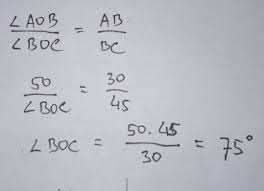 ∠AOB / ∠BOC = AB / BC
50 / ∠BOC = 30 / 45
∠BOC = 50.45 / 30 = 75°